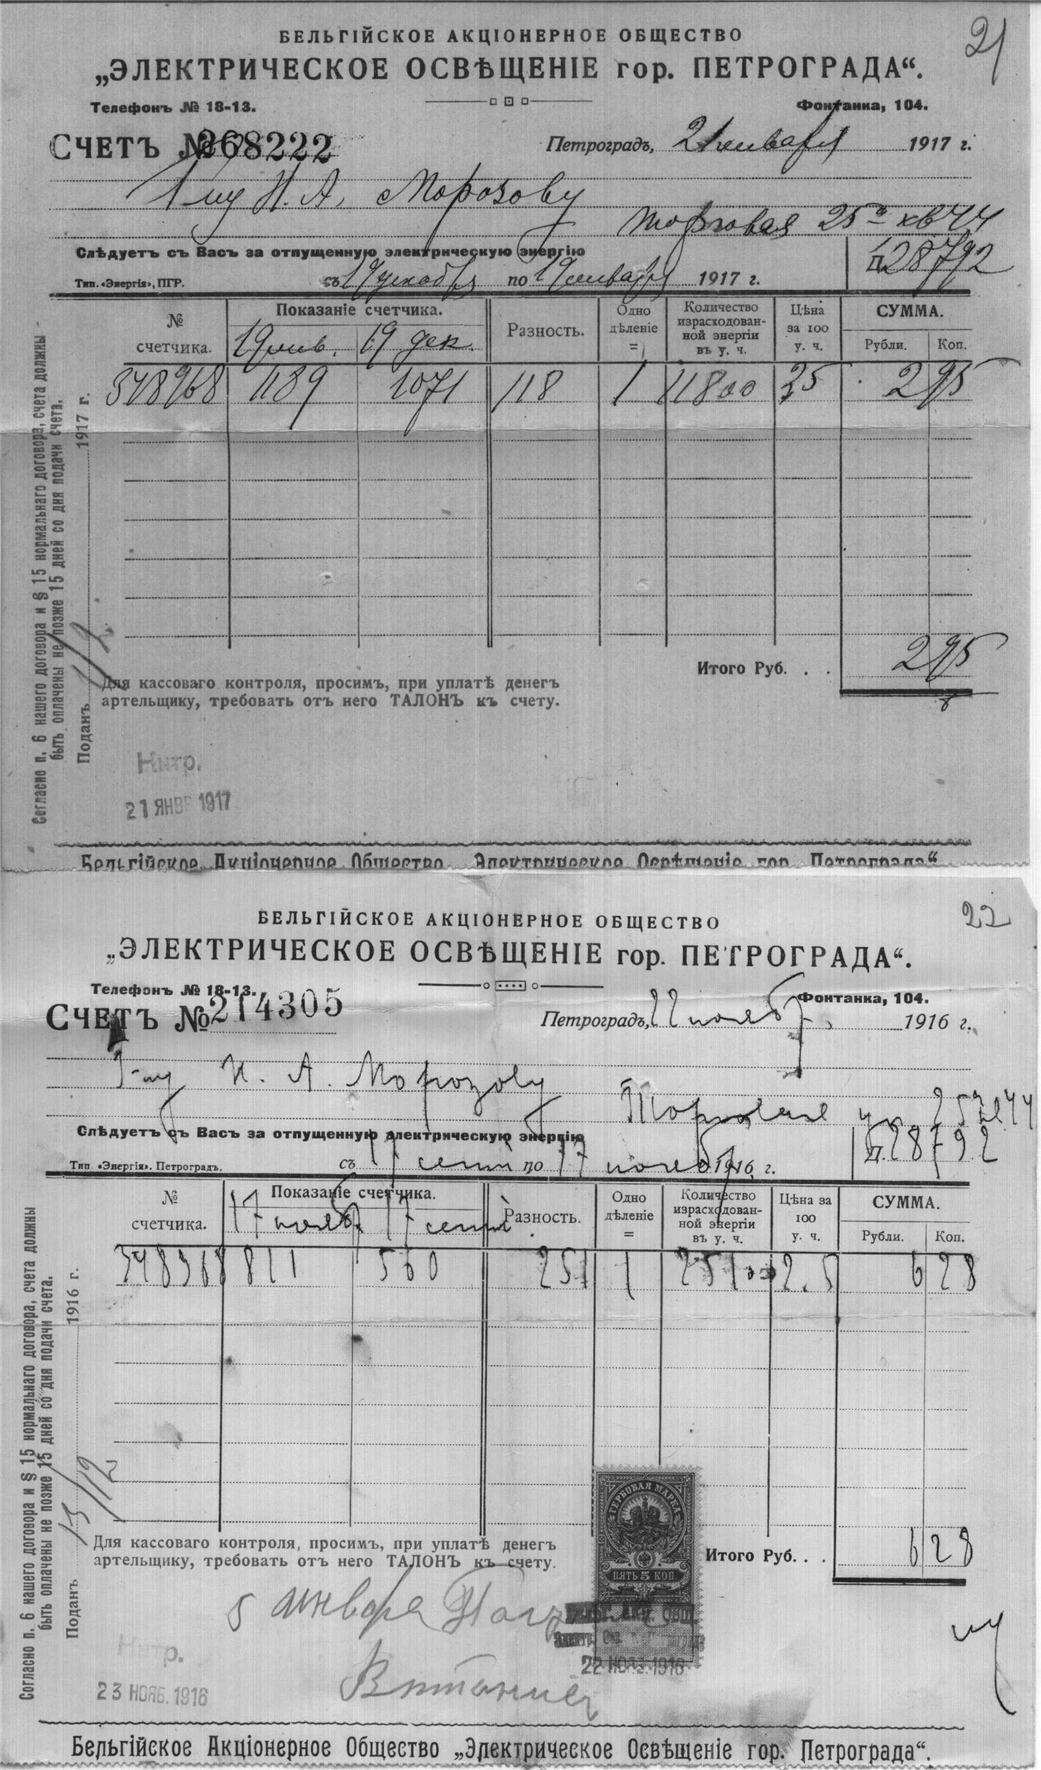 21
БЕЛЬГІЙСКОЕ АКЦІОНЕРНОЕ ОБЩЕСТВО
„ЭЛЕКТРИЧЕСКОЕ ОСВѢЩЕНІЕ гор. ПЕТРОГРАДА“.
Телефонъ № 18-13.
Фонтанка, 104.
СЧЕТЪ № 268222
Петроградъ, 21 января 1917 г.
Г-ну Н. А. Морозову
Торговая 25а кв 44
Слѣдуетъ съ Васъ за отпущенную электрическую энергію
Л. 28792
Тип. «Энергія», ПГР.
съ 19 декабря по 19 января 1917 г.
№ счетчика.
Показаніе счетчика.
19 янв. 19 дек.
Разность.
Одно дѣленіе =
Количество израсходован-ной энергіи въ у. ч.
Цѣна за 100 у. ч.
СУММА.
Рубли. Коп.
348968 1189 1071 118 1 11800 25 2 95
Итого Руб. . . 2 95
Для кассоваго контроля, просимъ, при уплатѣ денегъ
артельщику, требовать отъ него ТАЛОНЪ къ счету.
Согласно п. 6 нашего договора и § 15 нормальнаго договора, счета должны
быть оплачены не позже 15 дней со дня подачи счета.
Поданъ 1/2 1917 г.
Нтр.
21 ЯНВ 1917
Бельгійское Акціонерное Общество „Электрическое Освѣщеніе гор. Петрограда“
22
БЕЛЬГІЙСКОЕ АКЦІОНЕРНОЕ ОБЩЕСТВО
„ЭЛЕКТРИЧЕСКОЕ ОСВѢЩЕНІЕ гор. ПЕТРОГРАДА“.
Телефонъ № 18-13.
Фонтанка, 104.
СЧЕТЪ № 214305
Петроградъ, 22 нояб. 1916 г.
Г-ну Н. А. Морозову
Торговая ул 25 44
Слѣдуетъ съ Васъ за отпущенную электрическую энергію
Л. 28792
Тип. «Энергія». Петроградъ.
съ 17 сент по 17 нояб 1916 г.
№ счетчика.
Показаніе счетчика.
17 нояб 17 сент
Разность.
Одно дѣленіе =
Количество израсходован-ной энергіи въ у. ч.
Цѣна за 100 у. ч.
СУММА.
Рубли. Коп.
348368 811 560 251 1 25100 2.5 6 28
ГЕРБОВАЯ МАРКА
ПЯТЬ 5 КОП
Итого Руб. . . 6 28
Для кассоваго контроля, просимъ, при уплатѣ денегъ
артельщику, требовать отъ него ТАЛОНЪ къ счету.
Согласно п. 6 нашего договора и § 15 нормальнаго договора, счета должны
быть оплачены не позже 15 дней со дня подачи счета.
Поданъ 13/12 1916 г.
5 января
22 НОЯБ. 1916
Нтр.
23 НОЯБ. 1916
Бельгійское Акціонерное Общество „Электрическое Освѣщеніе гор. Петрограда“.